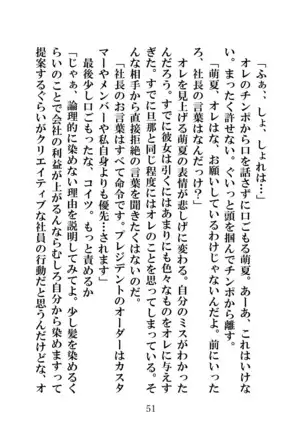 「ふぁ、しょ、しょれは…」
　オレのチンポから口を話さずに口ごもる萌夏。あーあ、これはいけな
い。まったく許せない。ぐいっと頭を掴んでチンポから離す。
「萌夏、オレはな、お願いしているわけじゃないんだよ。前にいった
ろ、社長の言葉はなんだっけ？」
　オレを見上げる萌夏の表情が悲しげに変わる。自分のミスがわかった
んだろう。すでに彼女は引くにはあまりにも色々なものをオレに与えす
ぎた。すでに旦那と同じ程度にはオレのことを思ってしまっている。そ
んな相手から直接拒絶の言葉を聞きたくはないのだ。
「社長のお言葉はすべて命令です。プレジデントのオーダーはカスタ
マーやメンバーや私自身よりも優先…されます」
　最後少し口ごもったな、コイツ。もっと責めるか
「じゃぁ、論理的に染めない理由を説明してみてよ。少し髪を染めるく
らいのことで会社の利益が上がるんならむしろ自分から染めますって
提案するぐらいがクリエイティブな社員の行動だと思うんだけどな、オ
51